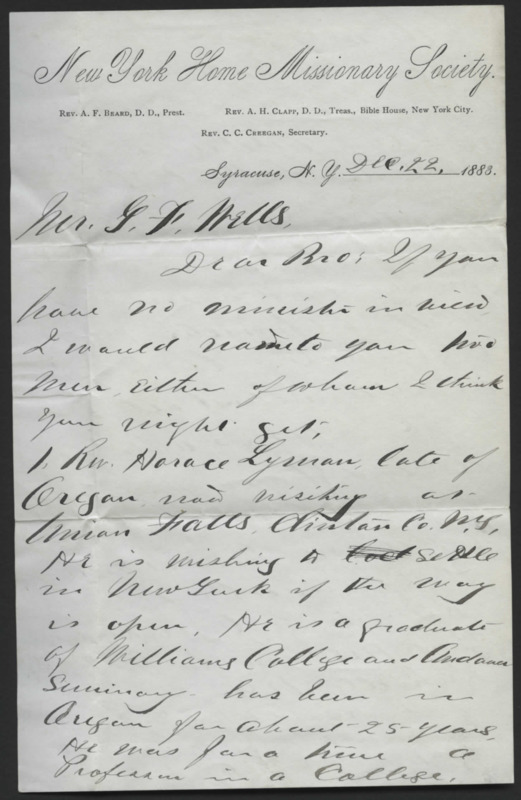 New York Home Missionary Society.
Rev. A. F. Beard, D. D., Prest. Rev. A. H. Clapp, D. D., Treas., Bible House, New York City.
Rev. C. C. Creegan, Secretary.
Syracuse, N. Y. Dec. 22, 1883.
Mr. G. F. Wells,
Dear Bro; If you
have no minister in view
I would name to you two
men, either of whom I think
you might get,
1. Rev. Horace Lyman, late of
Oregon now visiting at
Union Falls, Clinton Co. N.Y,
He is wishing to settle
in New York if the way
is open, He is a graduate
of Williams College and Andover
Seminary - has been in
Oregon for about 25 years,
He was for a time a
Professor in a College,